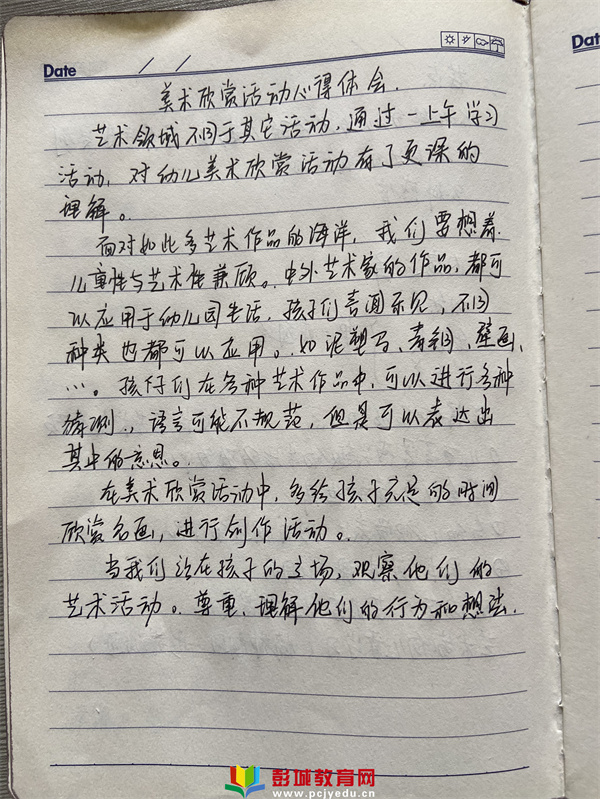 Date / /
Dat
美术欣赏活动心得体会.
艺术领域不同于其它活动,通过一上午学习
活动,对幼儿美术欣赏活动有了更深的
理解。
面对如此多艺术作品的海洋,我们要想着
儿童性与艺术性兼顾。中外艺术家的作品,都可
以应用于幼儿园生活,孩子们喜闻乐见,不同
种类也都可以应用。如泥塑马、青铜、壁画、
…。孩子们在各种艺术作品中,可以进行多种
猜测.,语言可能不规范,但是可以表达出
其中的意思。
在美术欣赏活动中,多给孩子充足的时间
欣赏名画,进行创作活动。
当我们站在孩子的立场,观察他们的
艺术活动。尊重、理解他们的行为和想法.
彭城教育网
www.pcjyedu.cn